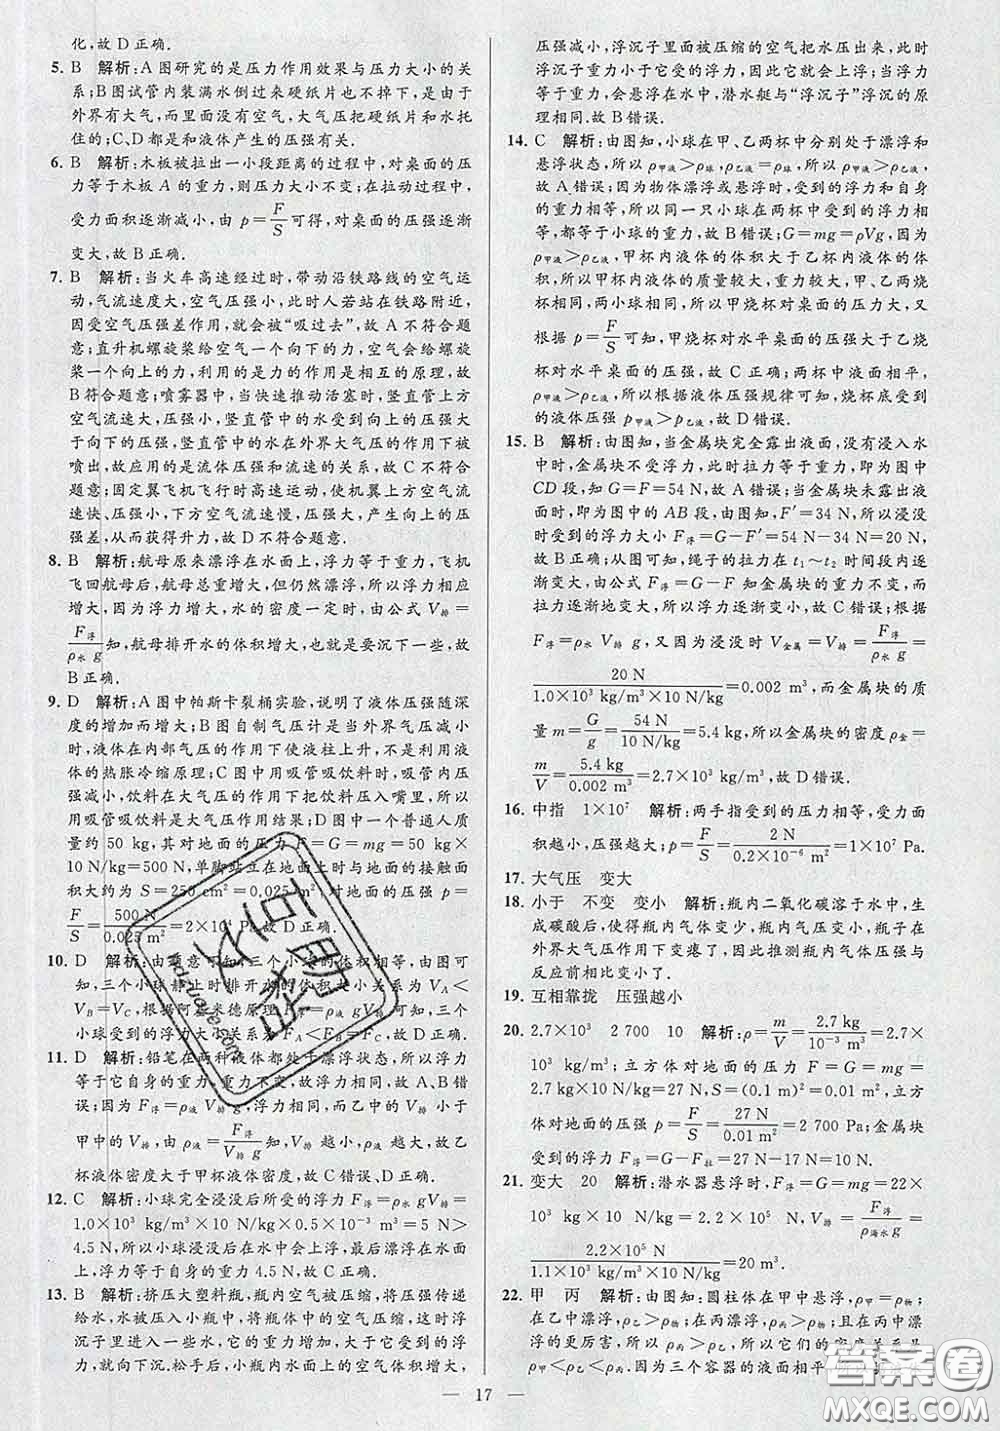 化,故 D 正确.
5. B 解析:A 图研究的是压力作用效果与压力大小的关
系;B 图试管内装满水倒过来硬纸片也不掉下,是由于
外界有大气,而里面没有空气,大气压把硬纸片与水托
住的;C、D 都是和液体产生的压强有关.
6. B 解析:木板被拉出一小段距离的过程中,对桌面的压
力等于木板 A 的重力,则压力大小不变;在拉动过程中,
受力面积逐渐减小,由 p=F/S 可得,对桌面的压强逐渐
变大,故 B 正确.
7. B 解析:当火车高速经过时,带动沿铁路线的空气运
动,气流速度大,空气压强小,此时人若站在铁路附近,
因受空气压强差作用,就会被“吸过去”,故 A 不符合题
意;直升机螺旋桨给空气一个向下的力,空气会给螺旋
桨一个向上的力,利用的是力的作用是相互的原理,故
B 符合题意;喷雾器中,当快速推动活塞时,竖直管上方
气流流速大,压强小,竖直管中的水受到向上的压强大
于向下的压强,竖直管中的水在外界大气压的作用下被
喷出,故应用的是流体压强和流速的关系,故 C 不符合
题意;固定翼飞机飞行时高速运动,使机翼上方空气流
速快、压强小,下方空气流速慢,压强大,产生向上的压
强差,从而获得升力,故 D 不符合题意.
8. B 解析:航母原来漂浮在水面上,浮力等于重力,飞机
飞回航母后,航母总重增大,但仍然漂浮,所以浮力相应
增大,因为浮力增大,水的密度一定时,由公式 V排=
F浮/ρ水 g知,航母排开水的体积增大,也就是要沉下一些,故
B 正确.
9. D 解析:A 图中帕斯卡裂桶实验,说明了液体压强随深
度的增加而增大;B 图自制气压计是当外界气压减小
时,液体在内部气压的作用下使液柱上升,不是利用液
体的热胀冷缩原理;C 图中用吸管吸饮料时,吸管内压
强减小,饮料在大气压的作用下将饮料压入嘴里,所以
用吸管吸饮料是大气压作用结果;D 图中一个普通人质
量约 50 kg,其对地面的压力 F=G=mg=50 kg×
10 N/kg=500 N,单脚站立在地面上时与地面的接触面
积大约为 S=250 cm²=0.025 m²,对地面的压强 p=
F/S=500 N/0.025 m²=2×10⁴ Pa,故 D 正确.
10. D 解析:由题意可知,三个小球的体积相等,由图可
知,三个小球静止时排开水的体积大小关系为 VA<
VB=VC,根据阿基米德原理 F浮=ρ水 V排 g 可知,三个
小球受到的浮力大小关系为 FA<FB=FC,故 D 正确.
11. D 解析:铅笔在两种液体都处于漂浮状态,所以浮力
等于它自身的重力,重力不变,故浮力相同,故 A、B 错
误;因为 F浮=ρ液 V排 g,浮力相同,而乙中的 V排 小于
甲中的 V排,由 ρ液=F浮/V排 g知,V排 越小,ρ液 越大,故乙
杯液体密度大于甲杯液体密度,故 C 错误、D 正确.
12. C 解析:小球完全浸没后所受的浮力 F浮=ρ水 gV排=
1.0×10³ kg/m³×10 N/kg×0.5×10⁻³ m³=5 N>
4.5 N,所以小球浸没后在水中会上浮,最后漂浮在水面
上,浮力等于自身的重力 4.5 N,故 C 正确.
13. B 解析:挤压大塑料瓶,瓶内空气被压缩,将压强传递
给水,水被压入小瓶中,将瓶体中的空气压缩,这时浮
沉子里进入一些水,它的重力增加,大于它受到的浮
力,就向下沉.松手后,小瓶内水面上的空气体积增大,
压强减小,浮沉子里面被压缩的空气把水压出来,此时
浮沉子重力小于它受的浮力,它就会上浮;当浮力与重
力等于时,会悬浮在水中,潜水艇与“浮沉子”浮沉的原
理相同.故 B 错误.
14. C 解析:由图知,小球在甲、乙两杯中分别处于漂浮和
悬浮状态,所以 ρ甲液>ρ球,ρ乙液=ρ球,所以 ρ甲液>ρ乙液,
故 A 错误;因为物体漂浮或悬浮时,受到的浮力和自身
的重力相等,所以同一只小球在两杯中受到的浮力相
等,都等于小球的重力,故 B 错误;G=mg=ρVg,因为
ρ甲液>ρ乙液,甲杯内液体的体积大于乙杯内液体的体
积,所以甲杯内液体的质量较大,重力较大,甲、乙两烧
杯相同,两小球相同,所以甲烧杯对桌面的压力大,又
根据 p=F/S可知,甲烧杯对水平桌面的压强大于乙烧
杯对水平桌面的压强,故 C 正确;两杯中液面相平,
ρ甲液>ρ乙液,所以根据液体压强规律可知,烧杯底受到
的液体压强 p甲液>p乙液,故 D 错误.
15. B 解析:由图知,当金属块完全露出液面,没有浸入水
中时,金属块不受浮力,此时拉力等于重力,即为图中
CD 段,可知 G=F=54 N,故 A 错误;当金属块未露出液
面时,即为图中的 AB 段,由图知,F′=34 N,所以浸没
时受到的浮力 F浮=G−F′=54 N−34 N=20 N,
故 B 正确;从图可知,绳子的拉力在 t₁~t₂ 时间段内逐
渐变大,由公式 F浮=G−F 知金属块的重力不变,而
拉力逐渐地变大,所以浮力逐渐变小,故 C 错误;根据
F浮=ρ水 V排 g,又因为浸没时 V金属=V排=F浮/ρ水 g=
20 N/1.0×10³ kg/m³×10 N/kg=0.002 m³,而金属块的质
量 m=G/g=54 N/10 N/kg=5.4 kg,所以金属块的密度 ρ金=
m/V=5.4 kg/0.002 m³=2.7×10³ kg/m³,故 D 错误.
16. 中指 1×10⁷ 解析:两手指受到的压力相等,受力面
积越小,压强越大;p=F/S=2 N/0.2×10⁻⁶ m²=1×10⁷ Pa.
17. 大气压 变大
18. 小于 不变 变小 解析:瓶内二氧化碳溶于水中,生
成碳酸后,使瓶内气体变少,瓶内气压变小,瓶子在
外界大气压作用下变瘪了,因此推测瓶内气体压强与
反应前相比变小了.
19. 互相靠拢 压强越小
20. 2.7×10³ 2 700 10 解析:ρ=m/V=2.7 kg/10⁻³ m³=2.7×
10³ kg/m³;立方体对地面的压力 F=G=mg=
2.7 kg×10 N/kg=27 N,S=(0.1 m)²=0.01 m²,立方
体对地面的压强 p=F/S=27 N/0.01 m²=2 700 Pa;金属块
受到的浮力 F浮=G−F拉=27 N−17 N=10 N.
21. 变大 20 解析:潜水器悬浮时,F浮=G=mg=22×
10³ kg×10 N/kg=2.2×10⁵ N,所以,V排=F浮/ρ海水 g=
2.2×10⁵ N/1.1×10³ kg/m³×10 N/kg=20 m³.
22. 甲 丙 解析:由图知:圆柱体在甲中悬浮,ρ甲=ρ物;
在乙中漂浮,ρ乙>ρ物;在丙漂浮,ρ丙>ρ物;且在丙中漂
浮的更厉害,所以 ρ丙>ρ乙,所以它们的密度关系是
ρ甲<ρ乙<ρ丙.因为三个容器的液面相平
— 17 —
答案圈
MXQE.COM